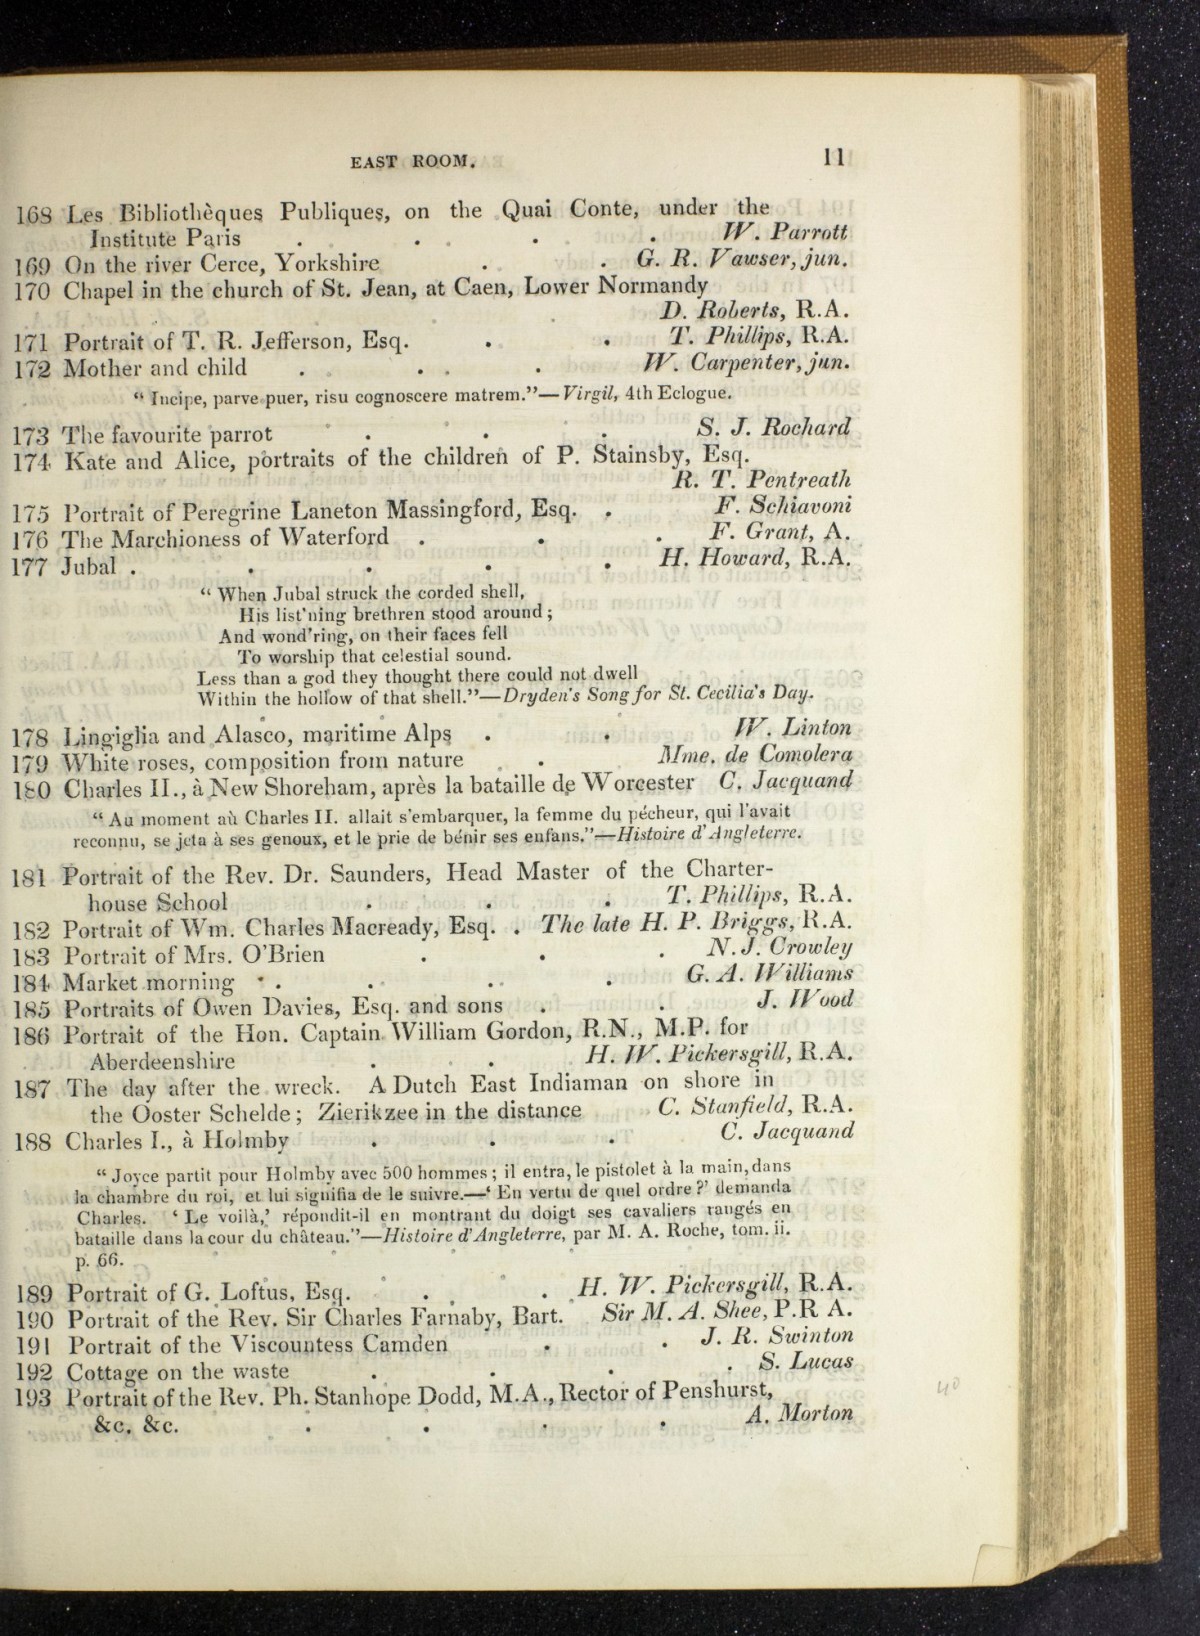 EAST ROOM. 11
168 Les Bibliothèques Publiques, on the Quai Conte, under the
Institute Paris . . . . W. Parrott
169 On the river Cerce, Yorkshire . . G. R. Vawser, jun.
170 Chapel in the church of St. Jean, at Caen, Lower Normandy
D. Roberts, R.A.
171 Portrait of T. R. Jefferson, Esq. . . T. Phillips, R.A.
172 Mother and child . . . W. Carpenter, jun.
“ Incipe, parve puer, risu cognoscere matrem.”—Virgil, 4th Eclogue.
173 The favourite parrot . . . S. J. Rochard
174 Kate and Alice, portraits of the children of P. Stainsby, Esq.
R. T. Pentreath
175 Portrait of Peregrine Laneton Massingford, Esq. . F. Schiavoni
176 The Marchioness of Waterford . . . F. Grant, A.
177 Jubal . . . . . H. Howard, R.A.
“ When Jubal struck the corded shell,
His list'ning brethren stood around ;
And wond'ring, on their faces fell
To worship that celestial sound.
Less than a god they thought there could not dwell
Within the hollow of that shell.”—Dryden's Song for St. Cecilia's Day.
178 Lingiglia and Alasco, maritime Alps . . W. Linton
179 White roses, composition from nature . Mme. de Comolera
180 Charles II., à New Shoreham, après la bataille de Worcester C. Jacquand
“ Au moment aù Charles II. allait s'embarquer, la femme du pécheur, qui l'avait
reconnu, se jeta à ses genoux, et le prie de bénir ses enfans.”—Histoire d'Angleterre.
181 Portrait of the Rev. Dr. Saunders, Head Master of the Charter-
house School . . . T. Phillips, R.A.
182 Portrait of Wm. Charles Macready, Esq. . The late H. P. Briggs, R.A.
183 Portrait of Mrs. O'Brien . . . N. J. Crowley
184 Market morning . . . . G. A. Williams
185 Portraits of Owen Davies, Esq. and sons . . J. Wood
186 Portrait of the Hon. Captain William Gordon, R.N., M.P. for
Aberdeenshire . . H. W. Pickersgill, R.A.
187 The day after the wreck. A Dutch East Indiaman on shore in
the Ooster Schelde ; Zierikzee in the distance C. Stanfield, R.A.
188 Charles I., à Holmby . . . C. Jacquand
“ Joyce partit pour Holmby avec 500 hommes ; il entra, le pistolet à la main, dans
la chambre du roi, et lui signifia de le suivre.—‘ En vertu de quel ordre ?’ demanda
Charles. ‘ Le voilà,’ répondit-il en montrant du doigt ses cavaliers rangés en
bataille dans la cour du château.”—Histoire d'Angleterre, par M. A. Roche, tom. ii.
p. 66.
189 Portrait of G. Loftus, Esq. . . H. W. Pickersgill, R.A.
190 Portrait of the Rev. Sir Charles Farnaby, Bart. Sir M. A. Shee, P.R A.
191 Portrait of the Viscountess Camden . . J. R. Swinton
192 Cottage on the waste . . . . S. Lucas
193 Portrait of the Rev. Ph. Stanhope Dodd, M.A., Rector of Penshurst,
&c. &c. . . . . A. Morton
40